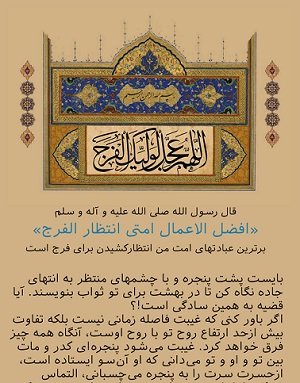 بسم الله الرحمن الرحیم
اللهم عجل لولیک الفرج
قال رسول الله صلی الله علیه و آله و سلم
«افضل الاعمال امتی انتظار الفرج»
برترین عبادتهای امت من انتظارکشیدن برای فرج است
بایست پشت پنجره و با چشمهای منتظر به انتهای
جاده نگاه کن تا در بهشت برای تو ثواب بنویسند. آیا
قضیه به همین سادگی است!؟
اگر باور کنی که غیبت فاصله زمانی نیست بلکه تفاوت
بیش ازحد ارتفاع روح تو با روح اوست، آنگاه همه چیز
فرق خواهد کرد. غیبت می‌شود پنجره‌ای کدر و مات
بین تو و او و تو می‌دانی که او آن‌سو ایستاده است،
ازحسرت سرت را به پنجره می‌چسبانی، التماس